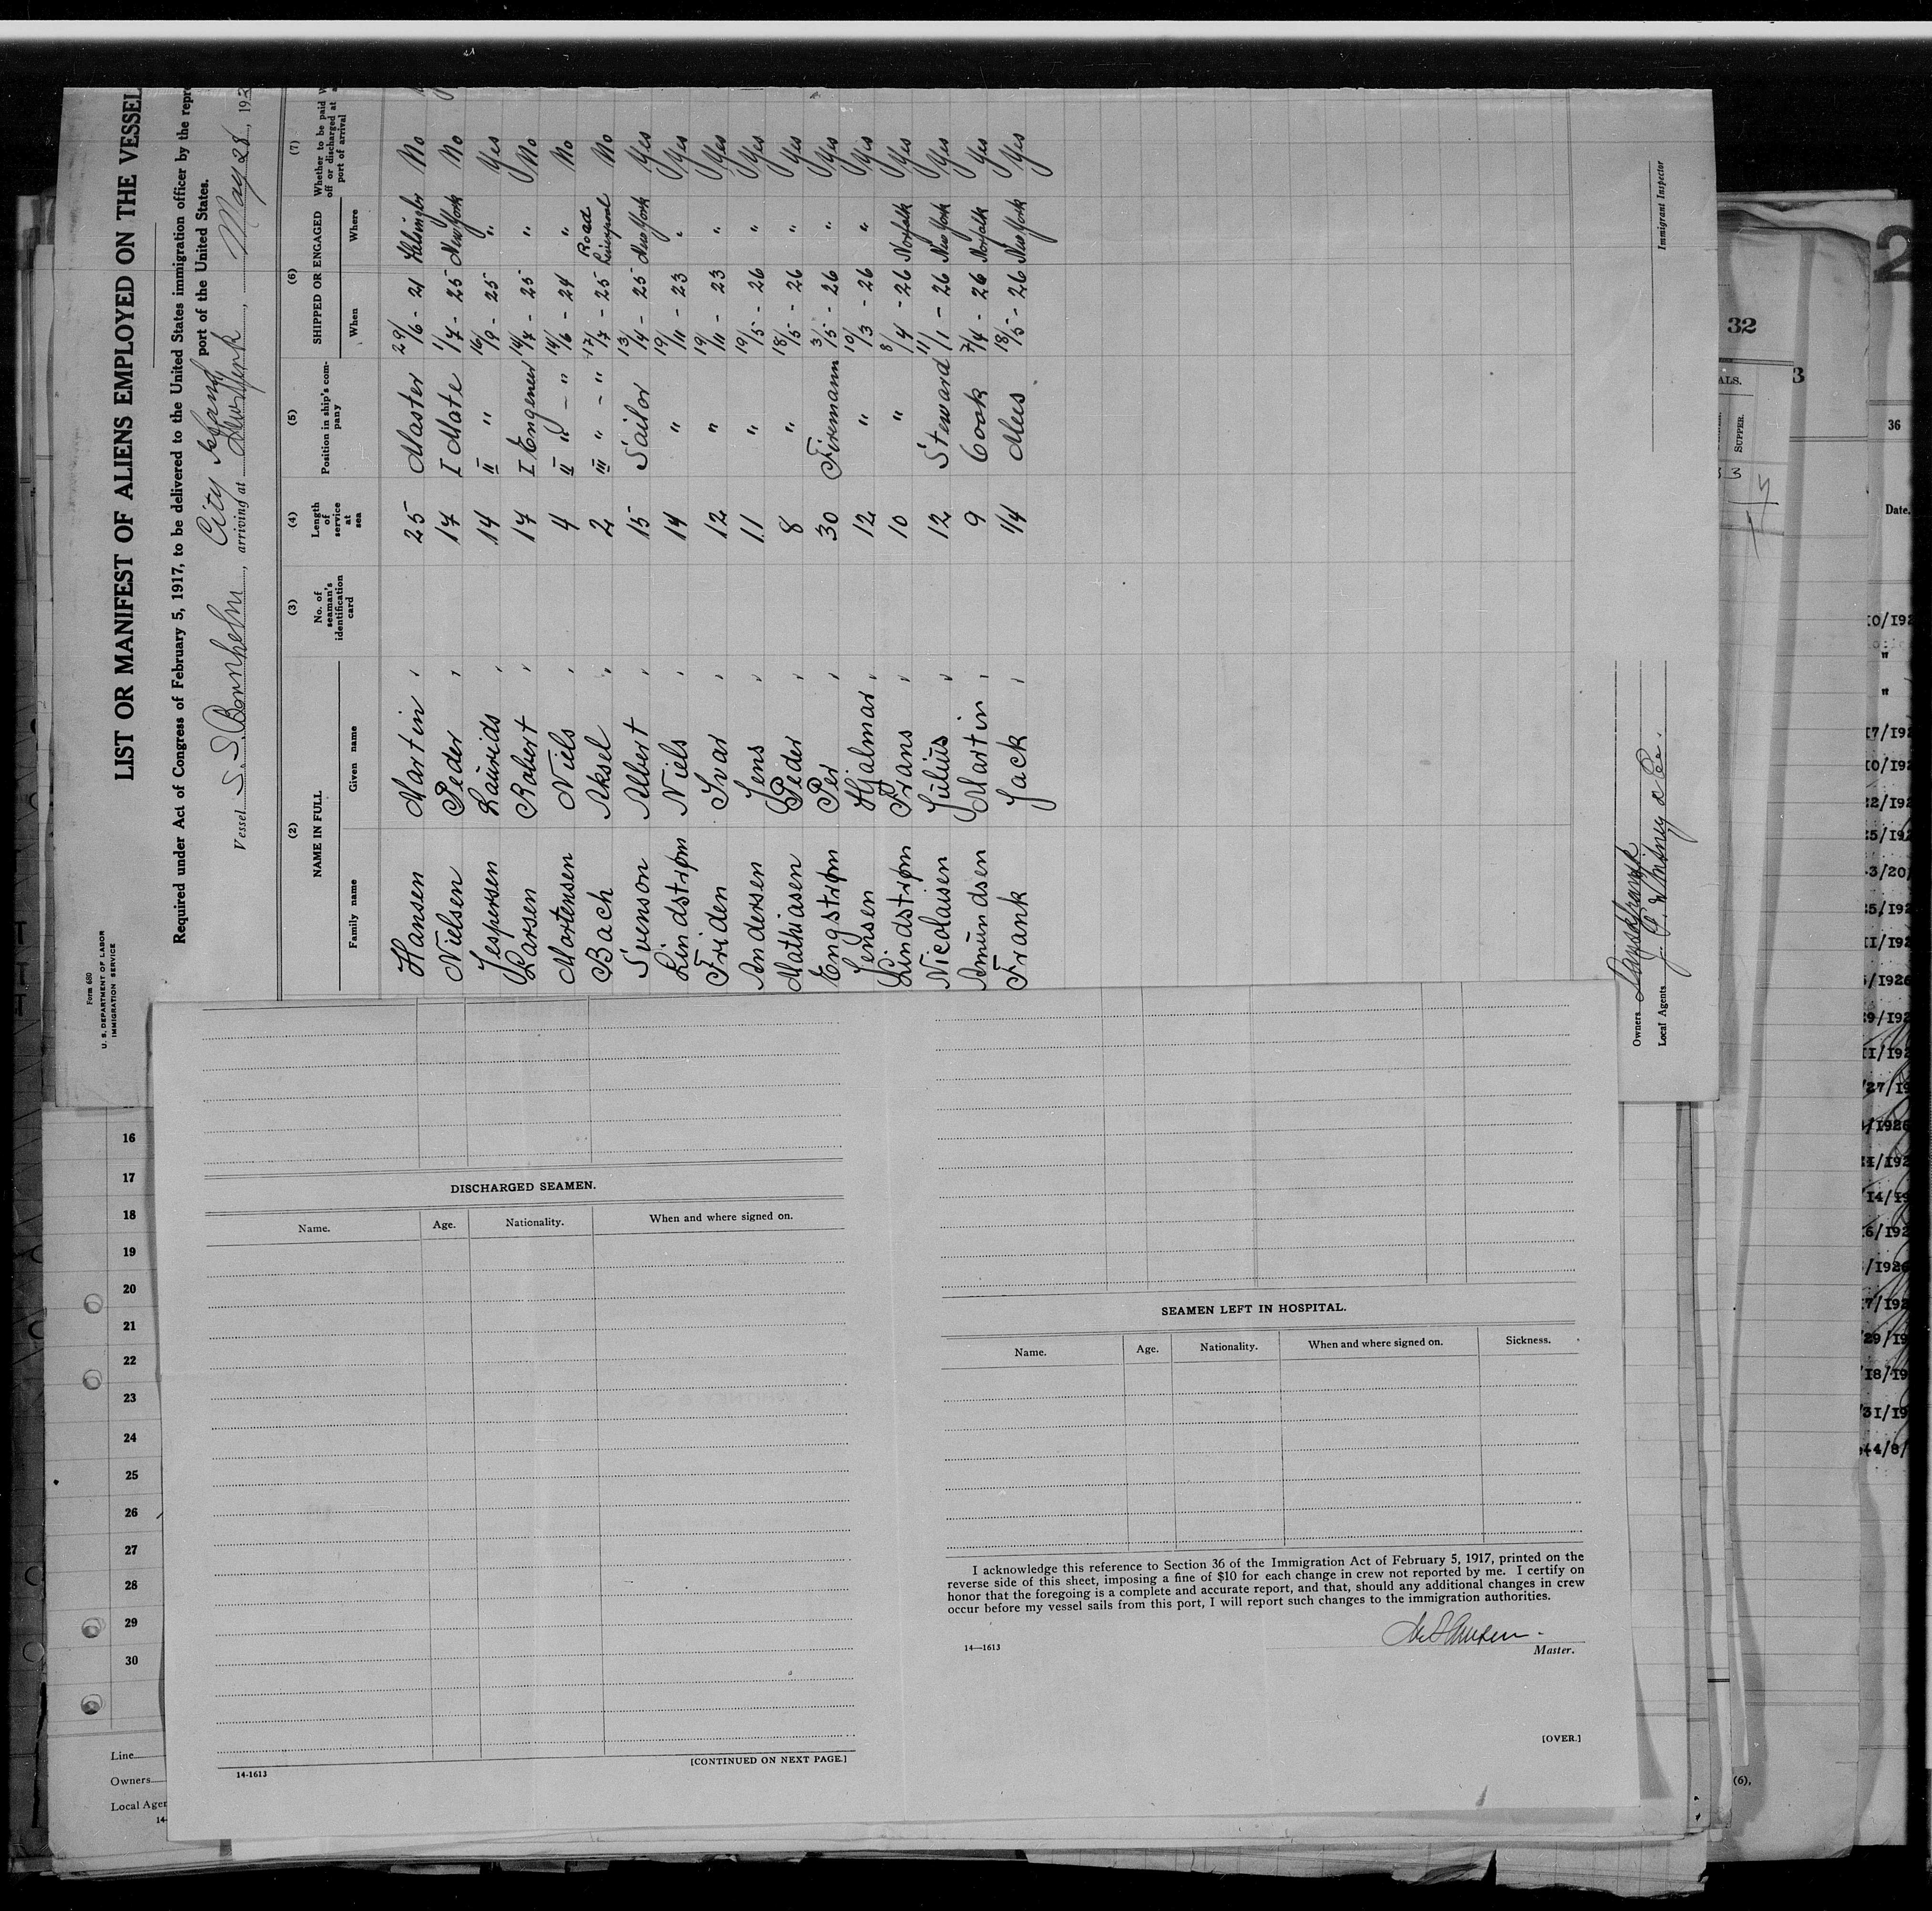 Form 680
U. S. DEPARTMENT OF LABOR
IMMIGRATION SERVICE
LIST OR MANIFEST OF ALIENS EMPLOYED ON THE VESSEL
Required under Act of Congress of February 5, 1917, to be delivered to the United States immigration officer by the repre
port of the United States.
Vessel S. S. Bornholm, arriving at New York, May 28, 192
City Island
(2) (3) (4) (5) (6) (7)
NAME IN FULL No. of seaman's identification card Length of service at sea Position in ship's company SHIPPED OR ENGAGED Whether to be paid off or discharged at port of arrival
Family name Given name When Where
Hansen Martin " 25 Master 29/6 - 21 Helsingör No
Nielsen Peder " 17 I Mate 1/7 - 25 New York No
Jespersen Laurids " 14 II " 16/9 - 25 " Yes
Larsen Robert " 17 I Engeneer 14/7 - 25 " No
Mortensen Niels " 4 II " - " 14/6 - 24 " No
Bach Aksel " 2 III " - " 17/7 - 25 Road Liverpool No
Svenson Albert " 15 Sailor 13/4 - 25 New York Yes
Lindstrøm Niels " 14 " 19/11 - 23 " Yes
Friden Ivar " 12 " 19/11 - 23 " Yes
Andersen Jens " 11 " 19/5 - 26 " Yes
Mathiasen Peder " 8 " 18/5 - 26 " Yes
Engstrøm Per " 30 Firemann 3/5 - 26 " Yes
Jensen Hjalmar " 12 " 10/3 - 26 " Yes
Lindstrøm Frans " 10 " 8/4 - 26 Norfolk Yes
Nicolaisen Julius " 12 Steward 11/1 - 26 New York Yes
Amundsen Martin " 9 Cook 7/4 - 26 Norfolk Yes
Frank Jack " 14 Mes 18/5 - 26 New York Yes
Owners
Local Agents J. H. Winchester & Co.
Immigrant Inspector
16
17
18
19
20
21
22
23
24
25
26
27
28
29
30
Line
Owners
Local Agen
14-
DISCHARGED SEAMEN.
Name. Age. Nationality. When and where signed on.
[CONTINUED ON NEXT PAGE.]
14-1613
SEAMEN LEFT IN HOSPITAL.
Name. Age. Nationality. When and where signed on. Sickness.
I acknowledge this reference to Section 36 of the Immigration Act of February 5, 1917, printed on the
reverse side of this sheet, imposing a fine of $10 for each change in crew not reported by me. I certify on
honor that the foregoing is a complete and accurate report, and that, should any additional changes in crew
occur before my vessel sails from this port, I will report such changes to the immigration authorities.
M Hansen
14—1613 Master.
[OVER.]
2
32
3
ALS.
SUPPER.
36
Date.
(6),